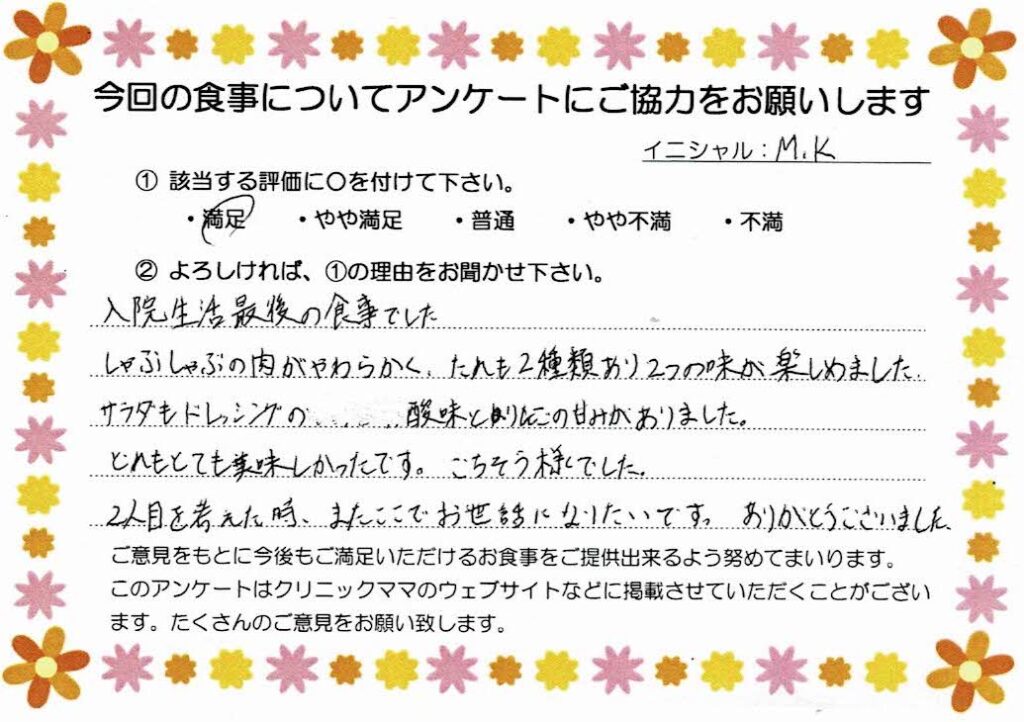 今回の食事についてアンケートにご協力をお願いします
イニシャル：M.K
① 該当する評価に○を付けて下さい。
・満足 ・やや満足 ・普通 ・やや不満 ・不満
② よろしければ、①の理由をお聞かせ下さい。
入院生活最後の食事でした
しゃぶしゃぶの肉がやわらかく、たれも2種類あり2つの味が楽しめました.
サラダもドレッシングの 酸味とりんごの甘みがありました。
どれもとても美味しかったです。ごちそう様でした。
2人目を考えた時、またここでお世話になりたいです。 ありがとうございました、
ご意見をもとに今後もご満足いただけるお食事をご提供出来るよう努めてまいります。
このアンケートはクリニックママのウェブサイトなどに掲載させていただくことがござい
ます。たくさんのご意見をお願い致します。